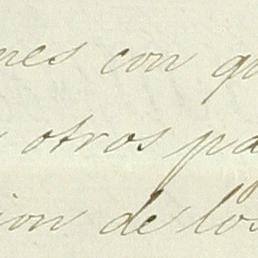 nes con qu
otros pa
ion de los